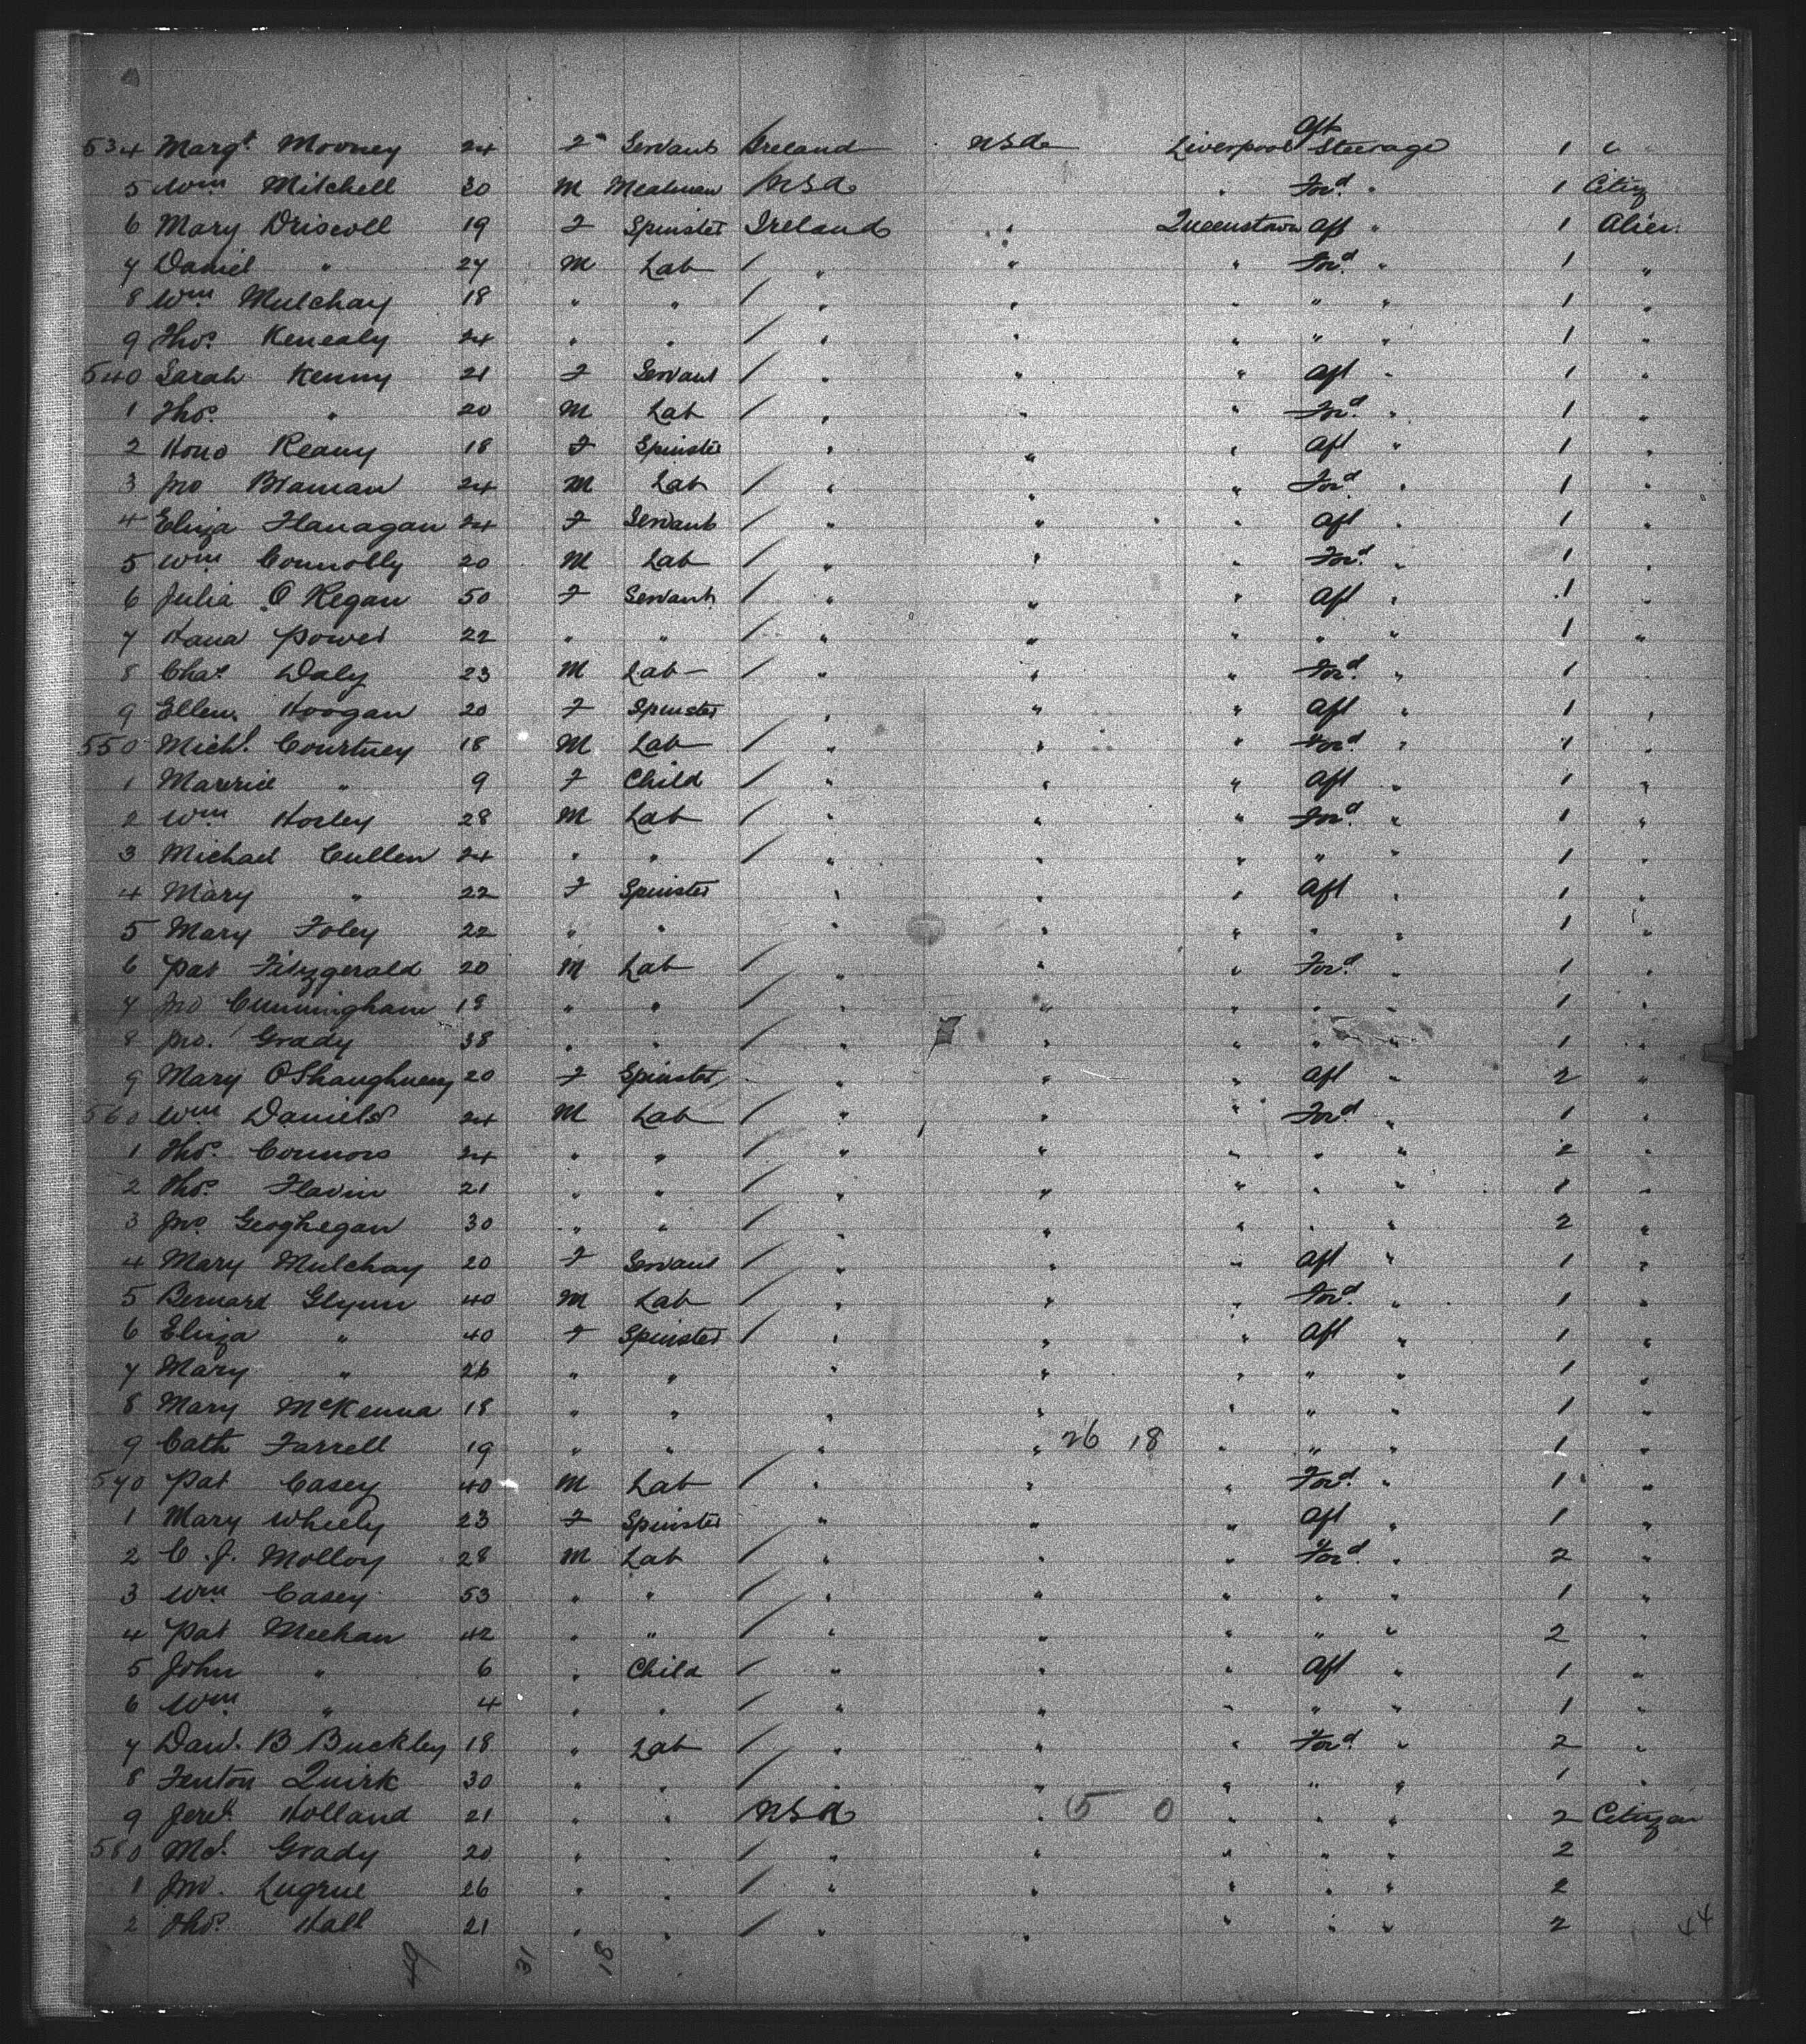 Aft
534 Margt. Mooney 24 F Servant Ireland USA Liverpool Steerage 1
5 Wm Mitchell 30 M Mealman USA " Ford. " 1 Citiz
6 Mary Driscoll 19 F Spinster Ireland " Queenstown Aft " 1 Alien
7 Daniel " 27 M Lab / " " " Ford. " 1 "
8 Wm Mulchay 18 " " / " " " " " 1 "
9 Thos. Kenealy 24 " " / " " " " " 1 "
540 Sarah Kenny 21 F Servant / " " " Aft " 1 "
1 Thos. " 20 M Lab / " " " Ford. " 1 "
2 Hono Reany 18 F Spinster " " " Aft " 1 "
3 Jno Branan 24 M Lab / " " " Ford. " 1 "
4 Eliza Flanagan 24 F Servant / " " " Aft " 1 "
5 Wm Connolly 20 M Lab / " " " Ford. " 1 "
6 Julia O'Regan 50 F Servant / " " " Aft " 1 "
7 Hana Power 22 " " / " " " " " 1 "
8 Chas. Daly 23 M Lab / " " " Ford. " 1 "
9 Ellen Hoogan 20 F Spinster " " " Aft " 1 "
550 Michl. Courtney 18 M Lab / " " " Ford. " 1 "
1 " 9 F Child / " " " Aft " 1 "
2 Wm Horley 28 M Lab / " " " Ford. " 1 "
3 Michael Cullen 24 " " / " " " " " 1 "
4 Mary " 22 F Spinster " " " Aft " 1 "
5 Mary Foley 22 " " " " " " " 1 "
6 Pat Fitzgerald 20 M Lab / " " " Ford. " 1 "
7 Jno Cunningham 18 " " / " " " " " 1 "
8 Jno. Grady 38 " " / " " " " " 1 "
9 Mary OShaughnessy 20 F Spinster " " " Aft " 2 "
560 Wm Daniels 24 M Lab / " " " Ford. " 1 "
1 Thos. Connors 24 " " / " " " " " 2 "
2 Thos. Flavin 21 " " / " " " " " 1 "
3 Jno. Geoghegan 30 " " / " " " " " 2 "
4 Mary Mulchay 20 F Servant / " " " Aft " 1 "
5 Bernard Glynn 40 M Lab / " " " Ford. " 1 "
6 Eliza " 40 F Spinster / " " " Aft " 1 "
7 Mary " 26 " " " " " " " 1 "
8 Mary McKenna 18 " " " " " " " 1 "
9 Cath Farrell 19 " " " " 26 18 " " " 1 "
570 Pat Casey 40 M Lab / " " " Ford. " 1 "
1 Mary Wheely 23 F Spinster " " " Aft " 1 "
2 C. J. Molloy 28 M Lab / " " " Ford. " 2 "
3 Wm Casey 53 " " / " " " " " 1 "
4 Pat Meehan 42 " " / " " " " " 2 "
5 John " 6 " Child / " " " Aft " 1 "
6 Wm " 4 " " / " " " " " 1 "
7 Danl. B Buckley 18 " Lab / " " " Ford. " 2 "
8 Fenton Quirk 30 " " / " " " " " 1 "
9 Jerh. Holland 21 " " USA " 5 0 " " " 2 Citizen
580 Ml. Grady 20 " " / " " " " " 2
1 Jno. Lugrue 26 " " / " " " " " 2
2 Thos. Hall 21 " " / " " " " " 2
44
49 31 18